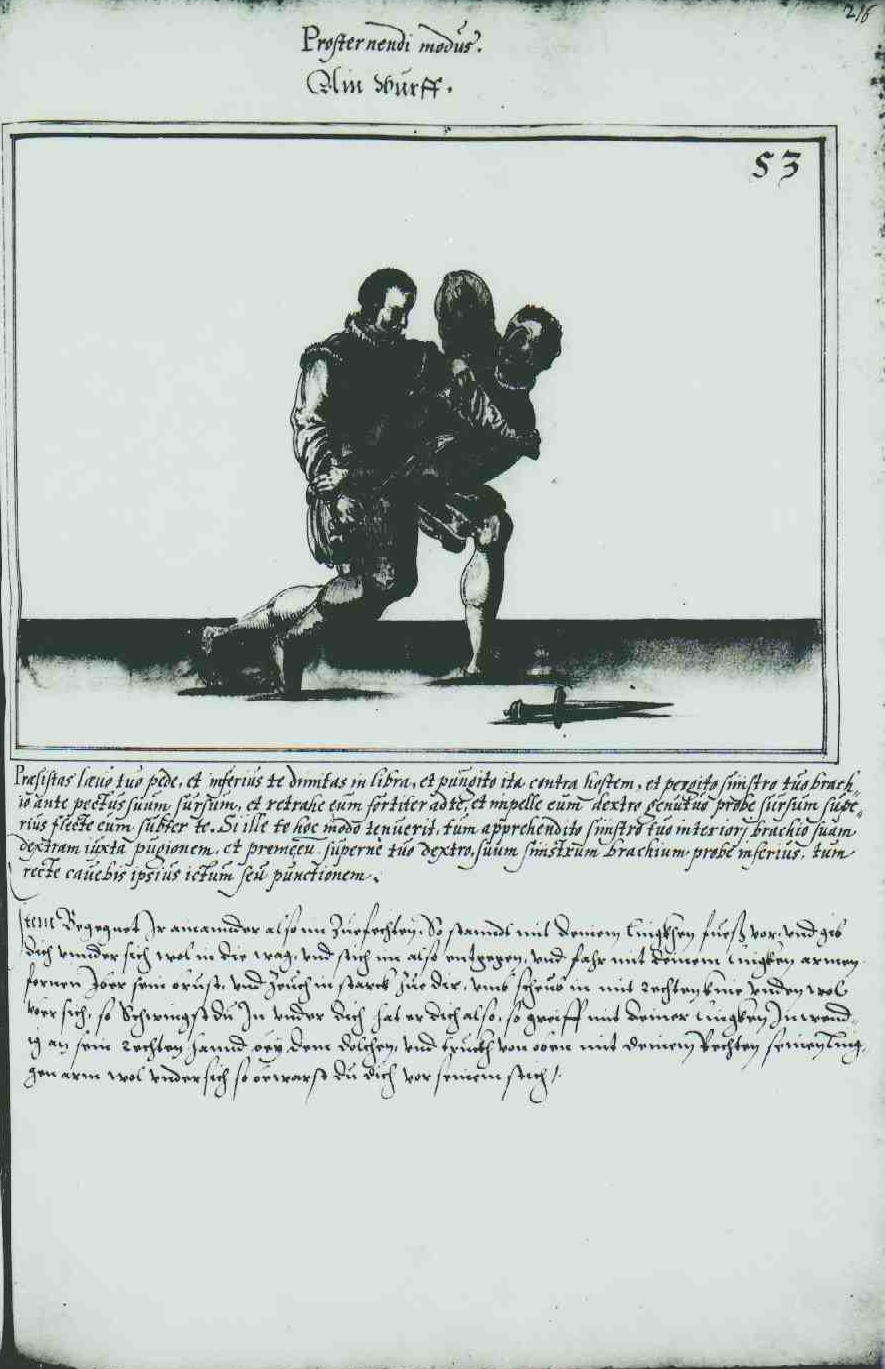 216
Prosternendi modus.
Ain Wurff.
53
Præsistas lævo tuo pede, et inferius te dimitas in libra, et pungito ita contra hostem, et pergito sinistro tuo brach-
io ante pectus suum sursum, et retrahe eum fortiter ad te, et impelle eum dextro genu tuo probe sursum supe-
rius flecte eum subter te. Si ille te hoc modo tenuerit, tum apprehendito sinistro tuo interiori brachio suam
dextram iuxta pugionem, et premeeu superne tuo dextro, suum sinistrum brachium probe inferius, tum
recte cavebis ipsius ictum seu punctionem.
Item Begegnet Jr ainannder also im Zuefechten, So stanndt mit deinem linggken fuesz vor, und gib
dich unnder sich wol in die wag, und stich im also entgegen, und fahr mit deinem linggken armen
fornen Jber sein brust, und zeuch in starck zue dir, unnd scheub in mit rechten knie unden wol
uber sich, so Schwingst du Jn under dich hat er dich also, so greiff mit deiner linggken Inwend-
ig an sein rechten hannd bey dem dolchen, und truckh von oben mit deinem Rechten seinen ling-
gen arm wol undersich so bewarst du dich vor seinem stich/.